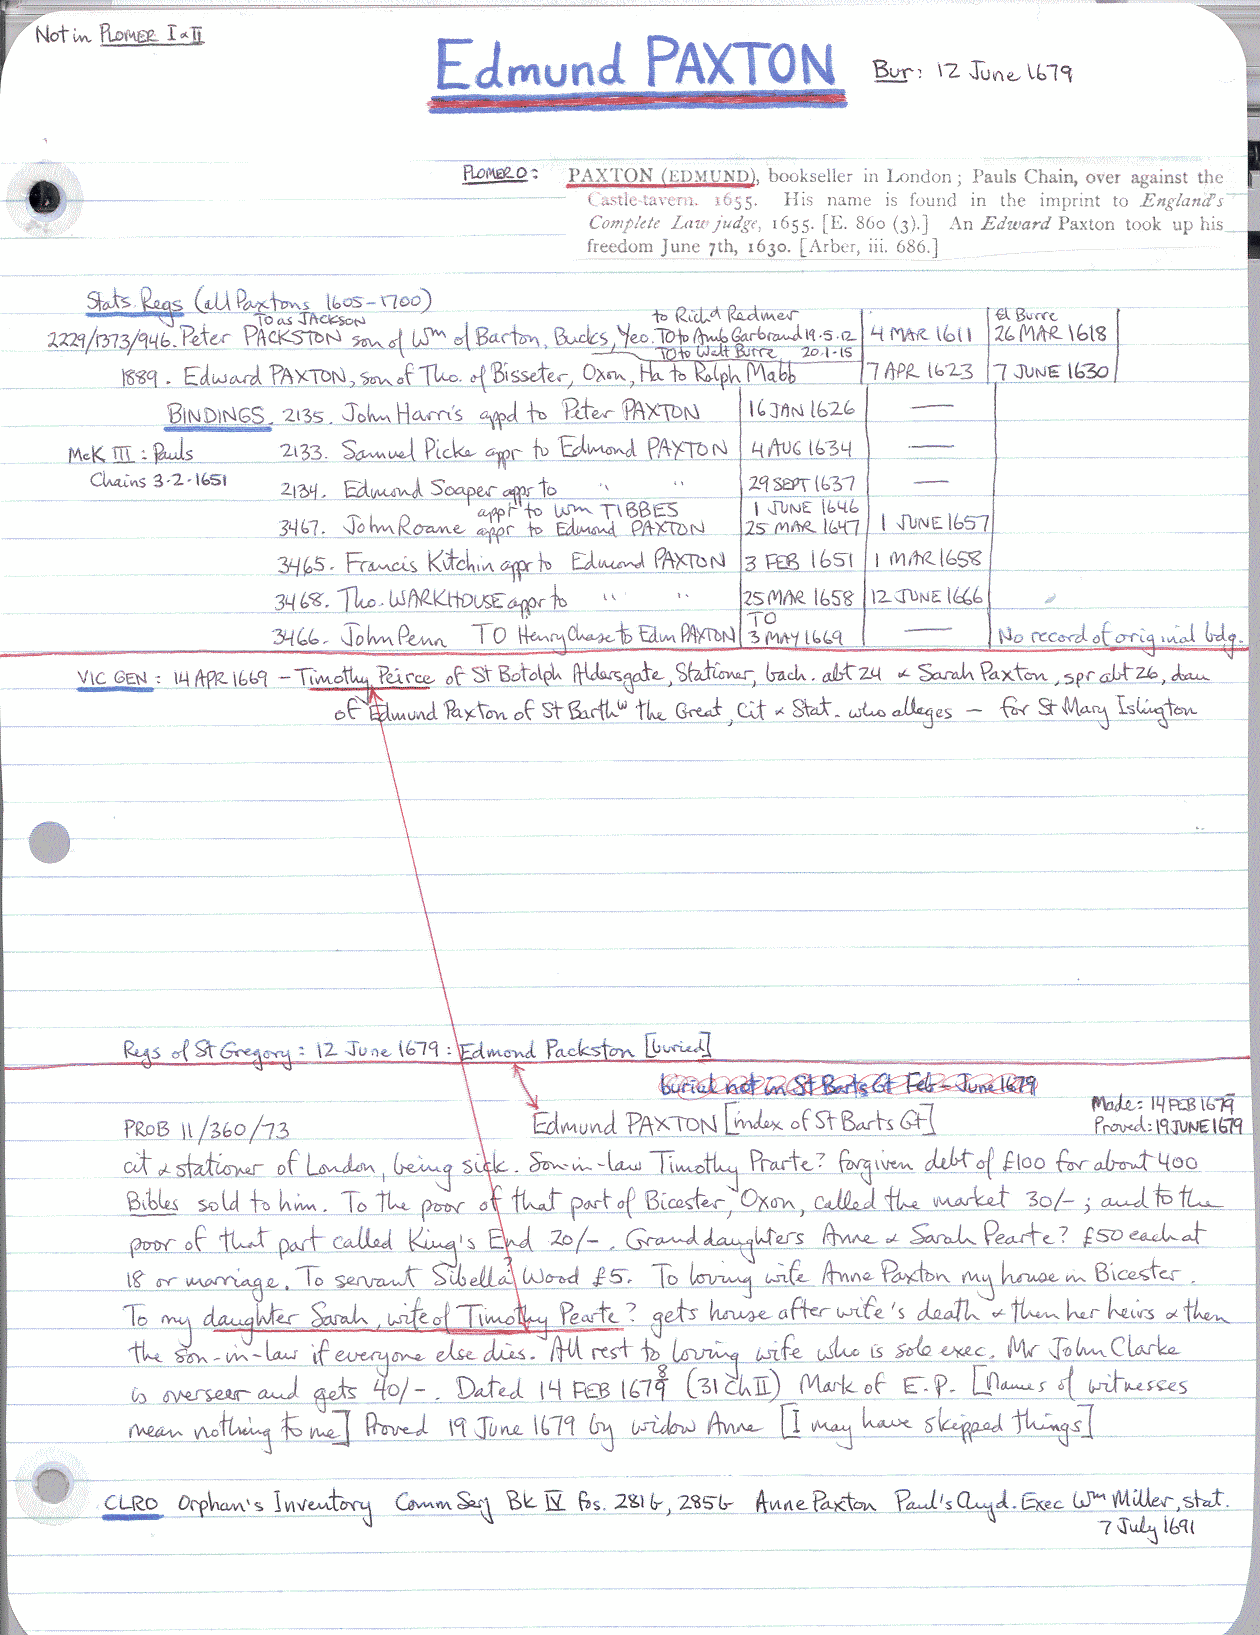 Not in PLOMER I & II
Edmund PAXTON
Bur: 12 June 1679
PLOMER O: PAXTON (EDMUND), bookseller in London; Pauls Chain, over against the
Castle-tavern. 1655. His name is found in the imprint to England's
Complete Law judge, 1655. [E. 860 (3).] An Edward Paxton took up his
freedom June 7th, 1630. [Arber, iii. 686.]
Stats. Regs (all Paxtons 1605-1700)
TO as JACKSON to Richd Redmer El Burre
2229/1373/946. Peter PACKSTON son of Wm of Barton, Bucks, Yeo. TO to Amb Garbrand 19.5.12 4 MAR 1611 26 MAR 1618
TO to Walt Burre 20.1.15
1889. Edward PAXTON, son of Tho. of Bisseter, Oxon, Ha to Rolph Mabb 7 APR 1623 7 JUNE 1630
BINDINGS. 2135. John Harris appd to Peter PAXTON 16 JAN 1626 —
McK III: Pauls 2133. Samuel Picke appr to Edmond PAXTON 4 AUG 1634 —
Chains 3.2.1651 2134. Edmond Soaper appr to " " 29 SEPT 1637 —
appr to Wm TIBBES 1 JUNE 1646
3467. John Roane appr to Edmond PAXTON 25 MAR 1647 1 JUNE 1657
3465. Francis Kitchin appr to Edmond PAXTON 3 FEB 1651 1 MAR 1658
3468. Tho. WARKHOUSE appr to " " 25 MAR 1658 12 JUNE 1666
TO
3466. John Penn TO Henry Chase to Edm PAXTON 3 MAY 1669 — No record of original bdg.
VIC GEN: 14 APR 1669 - Timothy Peirce of St Botolph Aldersgate, Stationer, bach. abt 24 & Sarah Paxton, spr abt 26, dau
of Edmund Paxton of St Barthw the Great, Cit & Stat. who alleges - for St Mary Islington
Regs of St Gregory: 12 June 1679: Edmond Packston [buried]
burial not in St Barts Gt Feb - June 1679
Made: 14 FEB 1679
PROB 11/360/73 Edmund PAXTON [index of St Barts Gt] Proved: 19 JUNE 1679
cit & stationer of London, being sick. Son-in-law Timothy Prarte? forgiven debt of £100 for about 400
Bibles sold to him. To the poor of that part of Bicester, Oxon, called the market 30/-; and to the
poor of that part called King's End 20/-. Granddaughters Anne & Sarah Pearte? £50 each at
18 or marriage. To servant Sibella? Wood £5. To loving wife Anne Paxton my house in Bicester.
To my daughter Sarah, wife of Timothy Pearte? gets house after wife's death & then her heirs & then
the son-in-law if everyone else dies. All rest to loving wife who is sole exec. Mr John Clarke
is overseer and gets 40/-. Dated 14 FEB 1678/9 (31 Ch II) Mark of E.P. [Names of witnesses
mean nothing to me] Proved 19 June 1679 by widow Anne [I may have skipped things]
CLRO Orphan's Inventory Comm Serj Bk IV fos. 281b, 285b Anne Paxton Paul's chyd. Exec Wm Miller, stat.
7 July 1691